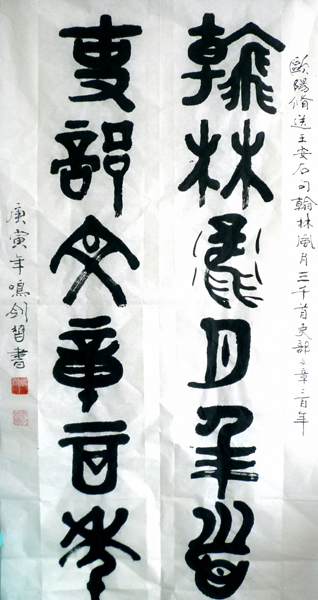 歐陽脩送王安石句翰林風月三千首吏部文章二百年
翰林風月三千首
吏部文章二百年
庚寅年鳴剑哲書